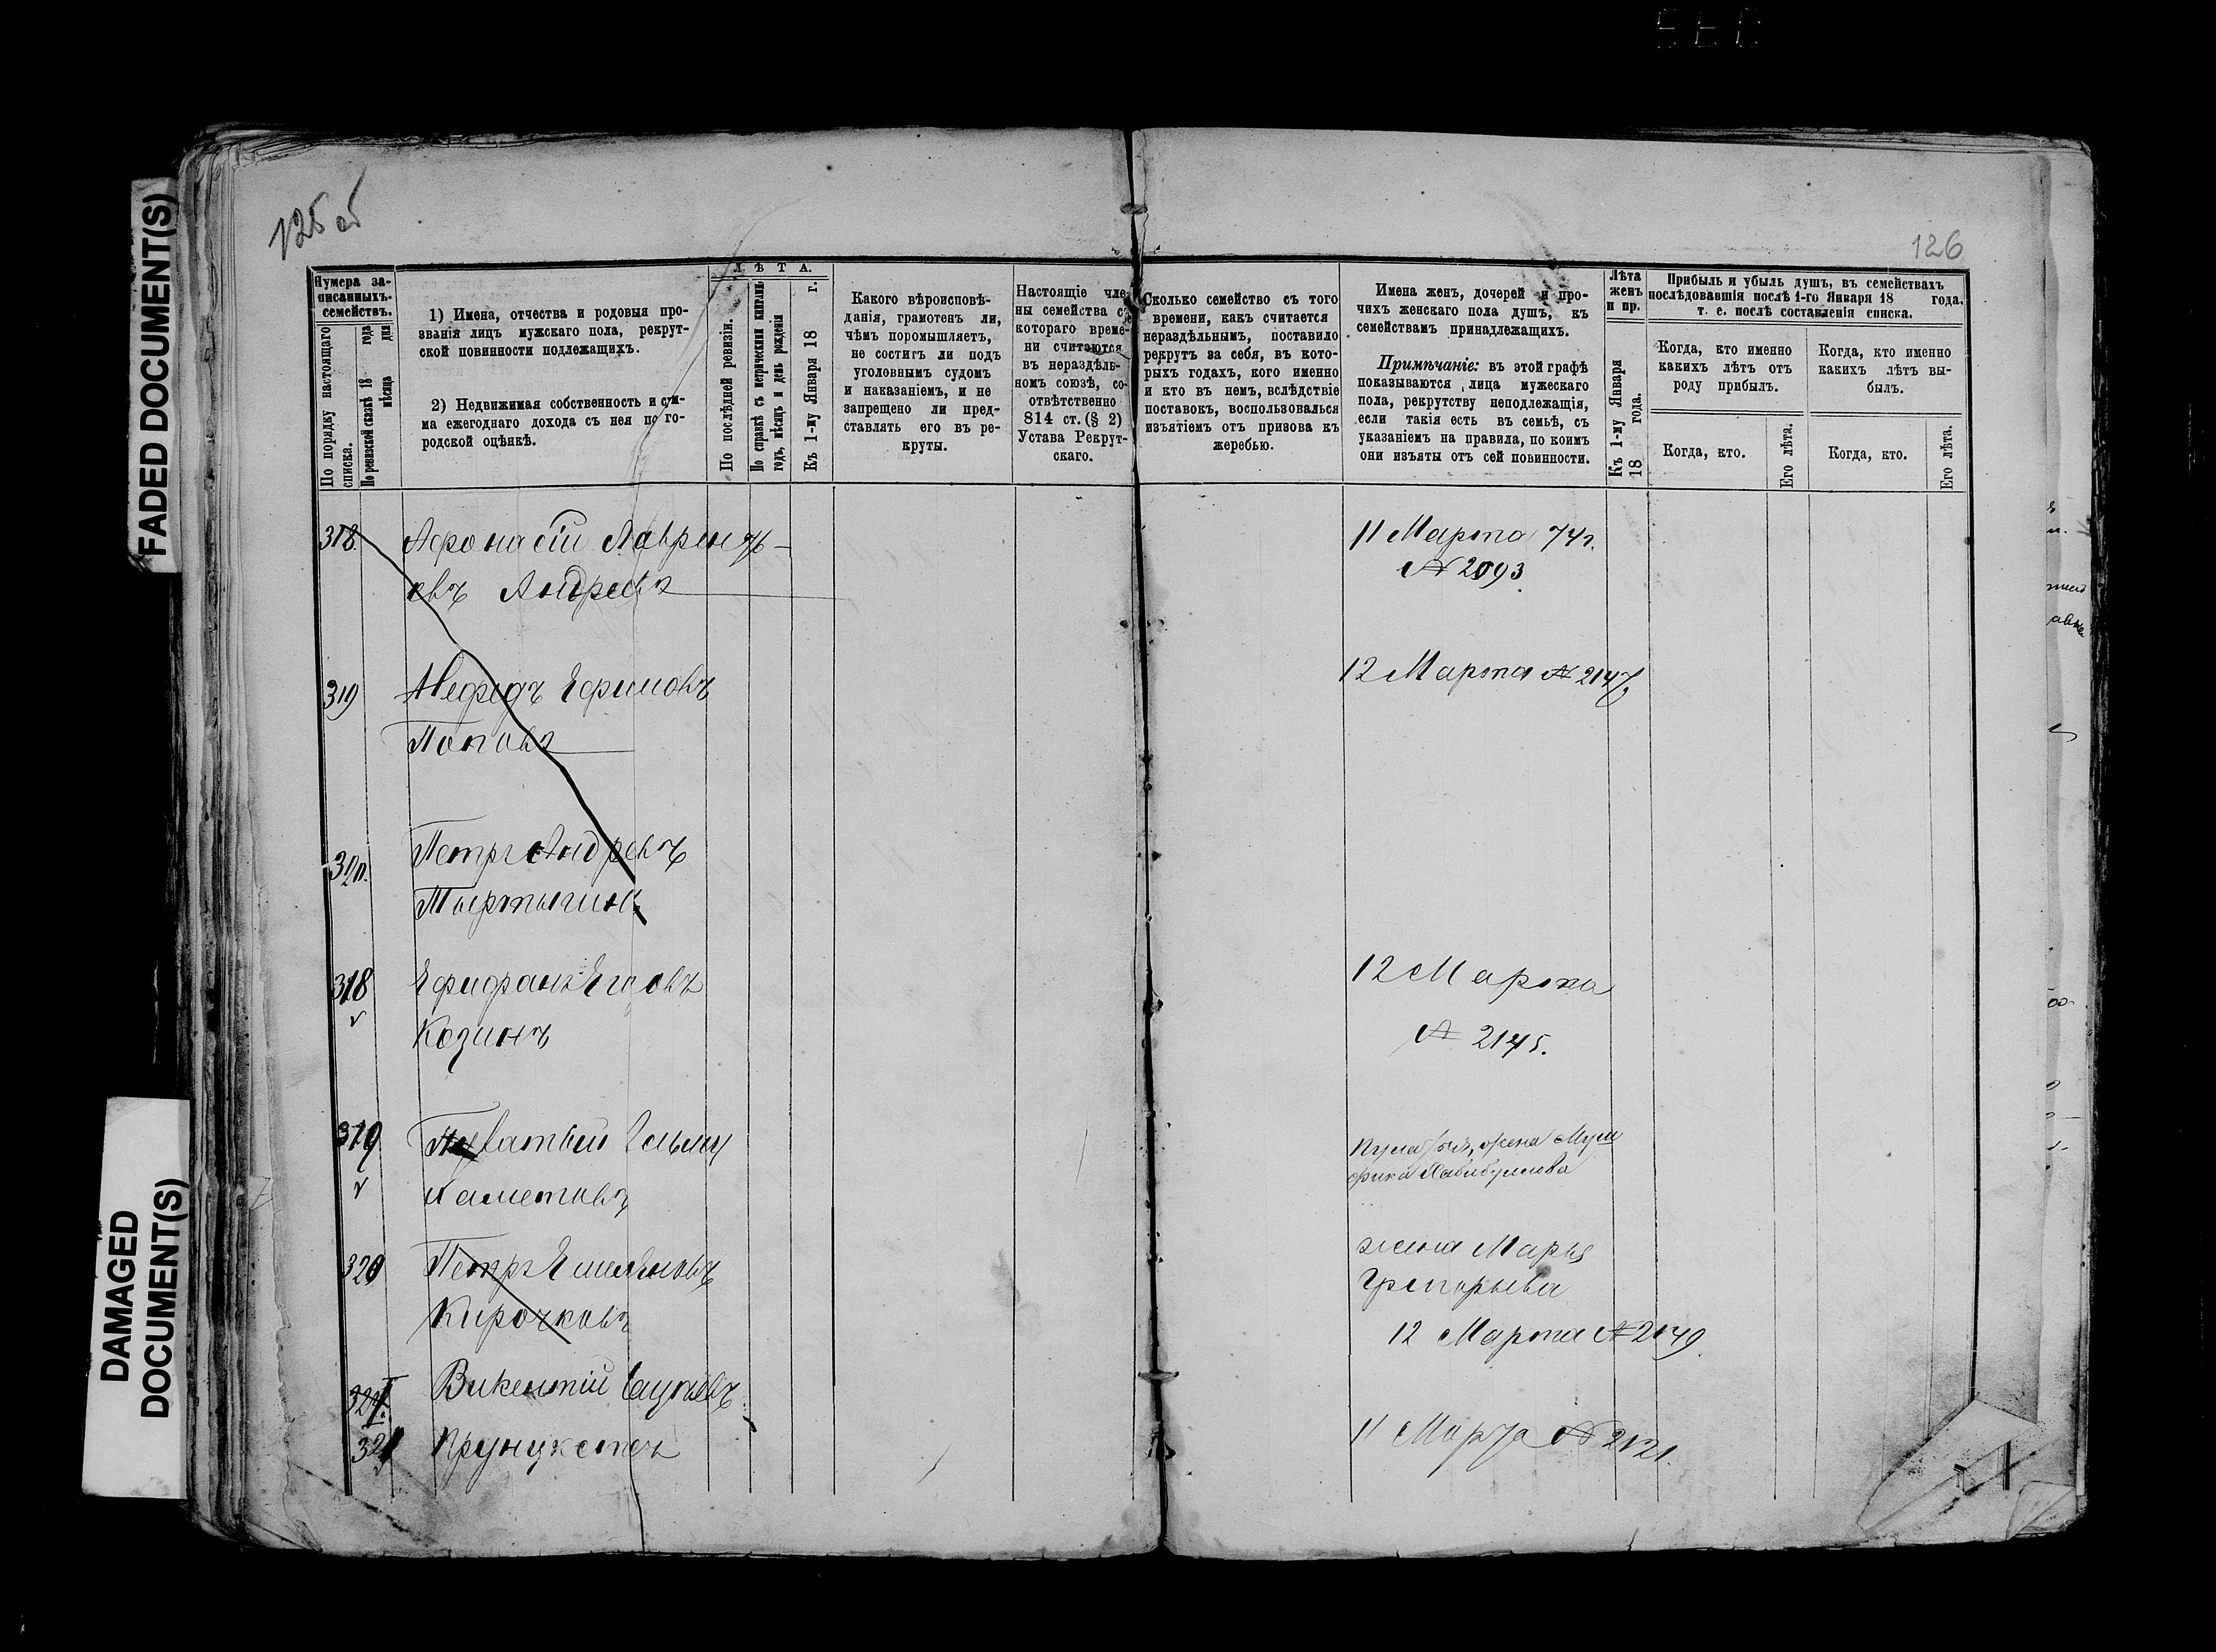 FADED DOCUMENT(S)
DAMAGED
DOCUMENT(S)
125 об
126
Нумера за-
писанныхъ
семействъ.
По порядку настоящаго
списка.
По ревизской сказкѣ 18 года
мѣсяца дня
1) Имена, отчества и родовыя про-
званія лицъ мужскаго пола, рекрут-
ской повинности подлежащихъ.
2) Недвижимая собственность и сум-
ма ежегоднаго дохода съ нея по го-
родской оцѣнкѣ.
ЛѢТА.
По послѣдней ревизіи.
По справкѣ съ метрическими книгами
годъ, мѣсяцъ и день рожденія
Къ 1-му Января 18 г.
Какого вѣроисповѣ-
данія, грамотенъ ли,
чѣмъ поромышляетъ,
не состигъ ли подъ
уголовнымъ судомъ
и наказаніемъ, и не
запрещено ли пред-
ставлять его въ ре-
круты.
Настоящіе чле-
ны семейства съ
котораго време-
ни считаются
въ нераздѣль-
номъ союзѣ, со-
отвѣтственно
814 ст. (§ 2)
Устава Рекрут-
скаго.
Сколько семейство съ того
времени, какъ считается
нераздѣльнымъ, поставило
рекрутъ за себя, въ кото-
рыхъ годахъ, кого именно
и кто въ немъ, вслѣдствіе
поставокъ, воспользовалься
изъятіемъ отъ призова къ
жеребью.
Имена женъ, дочерей и про-
чихъ женскаго пола душъ, къ
семействамъ принадлежащихъ.
Примѣчаніе: въ этой графѣ
показываются лица мужескаго
пола, рекрутству неподлежащія,
если такія есть въ семьѣ, съ
указаніемъ на правила, по коимъ
они изъяты отъ сей повинности.
Лѣта
женъ
и пр.
Къ 1-му Января
18 года.
Прибыль и убыль душъ, въ семействахъ
послѣдовавшія послѣ 1-го Января 18 года.
т. е. послѣ составленія списка.
Когда, кто именно
какихъ лѣтъ отъ
роду прибылъ.
Когда, кто именно
какихъ лѣтъ вы-
былъ.
Когда, кто.
Его лѣта.
Когда, кто.
Его лѣта.
318 Афонасій Лаврентъ-
евъ Андреевъ
11 Марта 74 г.
№ 2093
319 Мефедъ Ефимовъ
Поповъ
12 Марта № 2147
320. Петръ Андреевъ
Тыртыгинъ
318 Егоовъ
Козинъ
12 Марта
№ 2145.
319
жена
Хабибулова
320 Петръ Емельяновъ
Кирочковъ
жена Марья
Григорьева
12 Марта № 2149
Викентій
321
11 Марта № 2121.